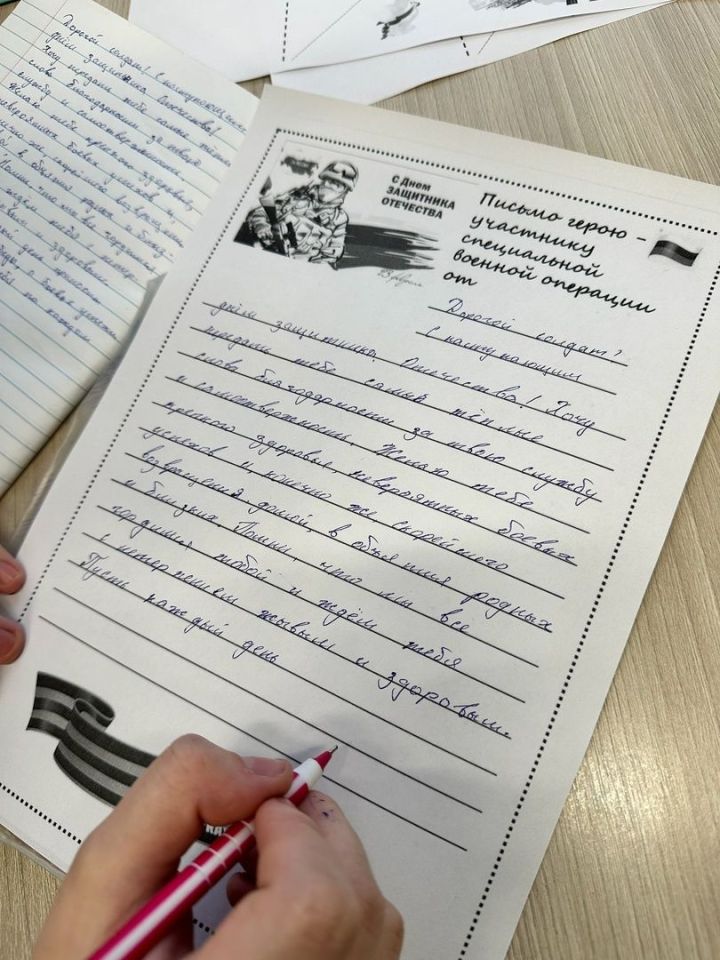 Дорогой солдат! С наступающим
днём защитника Отечества!
Хочу передать тебе самые тёплые
слова благодарности за твою
службу и самоотверженность
Желаю тебе крепкого здоровья,
невероятных боевых успехов и
скорейшего возвращения
в объятия родных и близ
С Днем
ЗАЩИТНИКА
ОТЕЧЕСТВА
23 февраля
Письмо герою -
участнику
специальной
военной операции
от
Дорогой солдат!
С наступающим
днём защитника Отечества! Хочу
передать тебе самые тёплые
слова благодарности за твою службу
и самоотверженность. Желаю тебе
крепкого здоровья, невероятных боевых
успехов и конечно же скорейшего
возвращения домой, в объятия родных
и близких. Помни, что мы все
гордимся тобой и ждём тебя
с нетерпением живым и здоровым.
Пусть каждый день